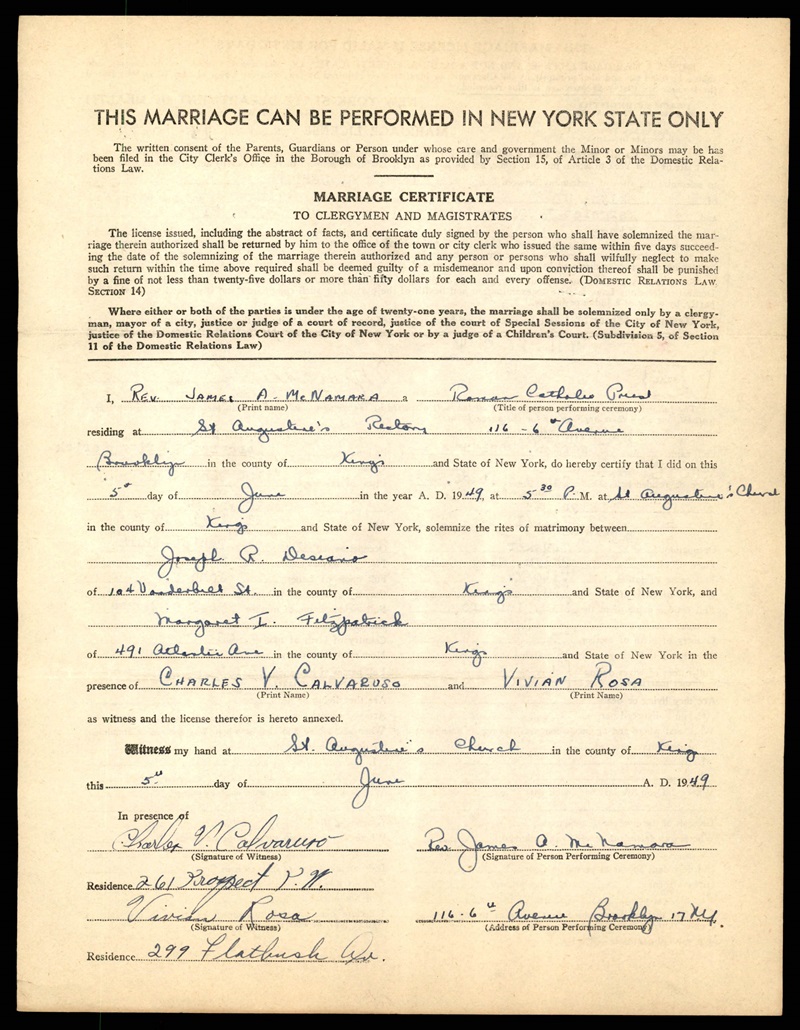 THIS MARRIAGE CAN BE PERFORMED IN NEW YORK STATE ONLY
The written consent of the Parents, Guardians or Person under whose care and government the Minor or Minors may be has
been filed in the City Clerk's Office in the Borough of Brooklyn as provided by Section 15, of Article 3 of the Domestic Rela-
tions Law.
MARRIAGE CERTIFICATE
TO CLERGYMEN AND MAGISTRATES
The license issued, including the abstract of facts, and certificate duly signed by the person who shall have solemnized the mar-
riage therein authorized shall be returned by him to the office of the town or city clerk who issued the same within five days succeed-
ing the date of the solemnizing of the marriage therein authorized and any person or persons who shall wilfully neglect to make
such return within the time above required shall be deemed guilty of a misdemeanor and upon conviction thereof shall be punished
by a fine of not less than twenty-five dollars or more than fifty dollars for each and every offense. (DOMESTIC RELATIONS LAW
SECTION 14)
Where either or both of the parties is under the age of twenty-one years, the marriage shall be solemnized only by a clergy-
man, mayor of a city, justice or judge of a court of record, justice of the court of Special Sessions of the City of New York,
justice of the Domestic Relations Court of the City of New York or by a judge of a Children's Court. (Subdivision 5, of Section
11 of the Domestic Relations Law)
I, REV. JAMES A. McNAMARA a Roman Catholic Priest
(Print name) (Title of person performing ceremony)
residing at St Augustine's Rectory 116-6th Avenue
Brooklyn in the county of Kings and State of New York, do hereby certify that I did on this
5th day of June in the year A. D. 1949, at 5 30 P. M. at St Augustine's Church
in the county of Kings and State of New York, solemnize the rites of matrimony between
Joseph R.
of 104 Vanderbilt St. in the county of Kings and State of New York, and
Margaret I. Fitzpatrick
of 491 Atlantic Ave in the county of Kings and State of New York in the
presence of CHARLES V. CALVARUSO and VIVIAN ROSA
(Print Name) (Print Name)
as witness and the license therefor is hereto annexed.
Witness my hand at St. Augustine's Church in the county of Kings
this 5th day of June A. D. 1949
In presence of
Charles V. Calvaruso Rev. James A. McNamara
(Signature of Witness) (Signature of Person Performing Ceremony)
Residence 261 Prospect P. W.
Vivian Rosa 116-6th Avenue Brooklyn 17 N.Y.
(Signature of Witness) (Address of Person Performing Ceremony)
Residence 299 Flatbush Av.